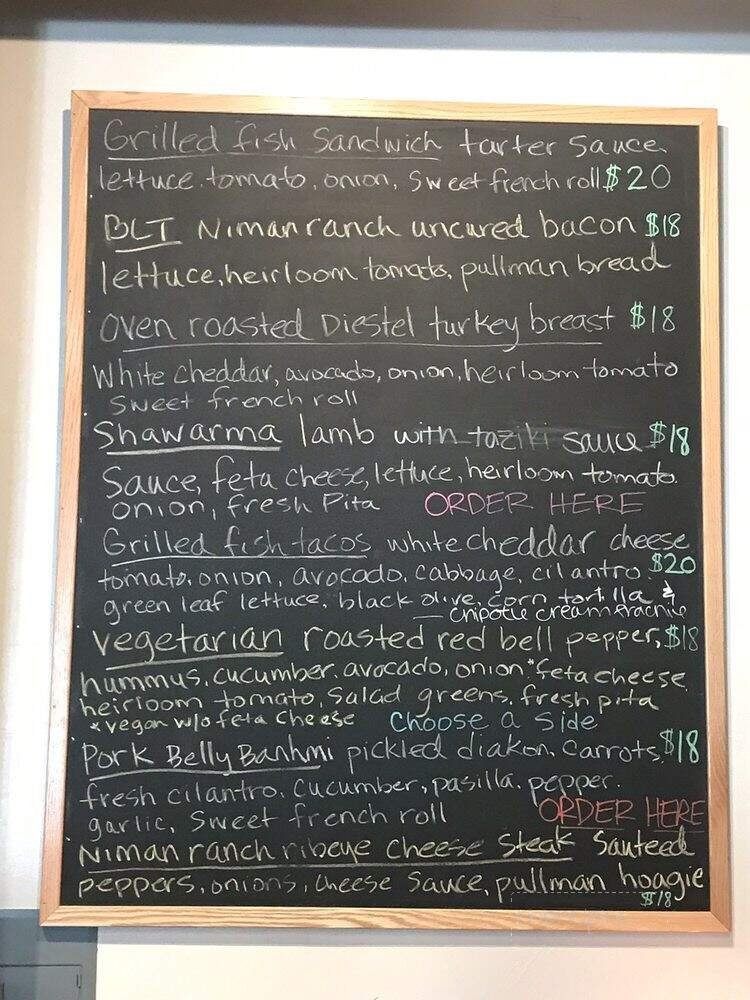 Grilled fish Sandwich tarter sauce
lettuce. tomato, onion, sweet french roll $20
BLT Niman ranch uncured bacon $18
lettuce, heirloom tomato, pullman bread
Oven roasted Diestel turkey breast $18
White cheddar, avocado, onion, heirloom tomato
Sweet french roll
Shawarma lamb with taziki sauce $18
Sauce, feta cheese, lettuce, heirloom tomato
onion, fresh Pita ORDER HERE
Grilled fish tacos white cheddar cheese
tomato, onion, avocado, cabbage, cilantro. $20
green leaf lettuce. black olive, corn tortilla &
chipotle cream
vegetarian roasted red bell pepper, $18
hummus, cucumber. avocado, onion *feta cheese
heirloom tomato, salad greens. fresh pita
*vegan w/o feta Cheese Choose a Side
Pork Belly Banhmi pickled diakon. Carrots. $18
fresh cilantro. cucumber, pasilla. pepper.
garlic, Sweet french roll ORDER HERE
Niman ranch ribeye cheese steak Sauteed
peppers, onions, cheese sauce, pullman hoagie
$18